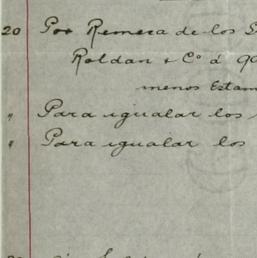 20 Por Remesa de los S
Roldan & Cº á 90
menos Estam
" Para igualar los
" Para igualar los